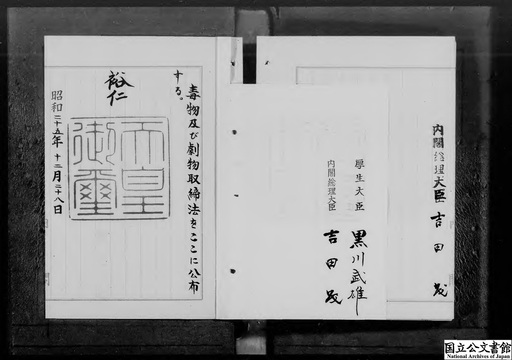 内閣総理大臣 吉田茂
厚生大臣 黒川武雄
内閣総理大臣 吉田茂
毒物及び劇物取締法をここに公布
する。
裕仁
天皇
御璽
昭和二十五年十二月二十八日
国立公文書館
National Archives of Japan